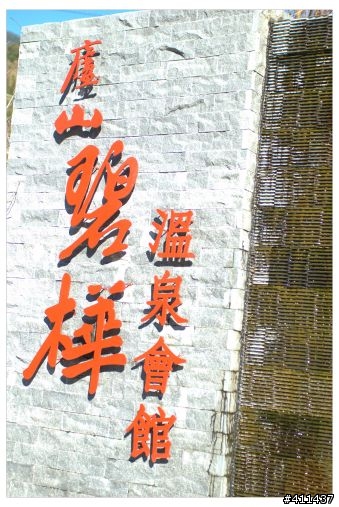 廬山碧樺
溫泉會館
#411437